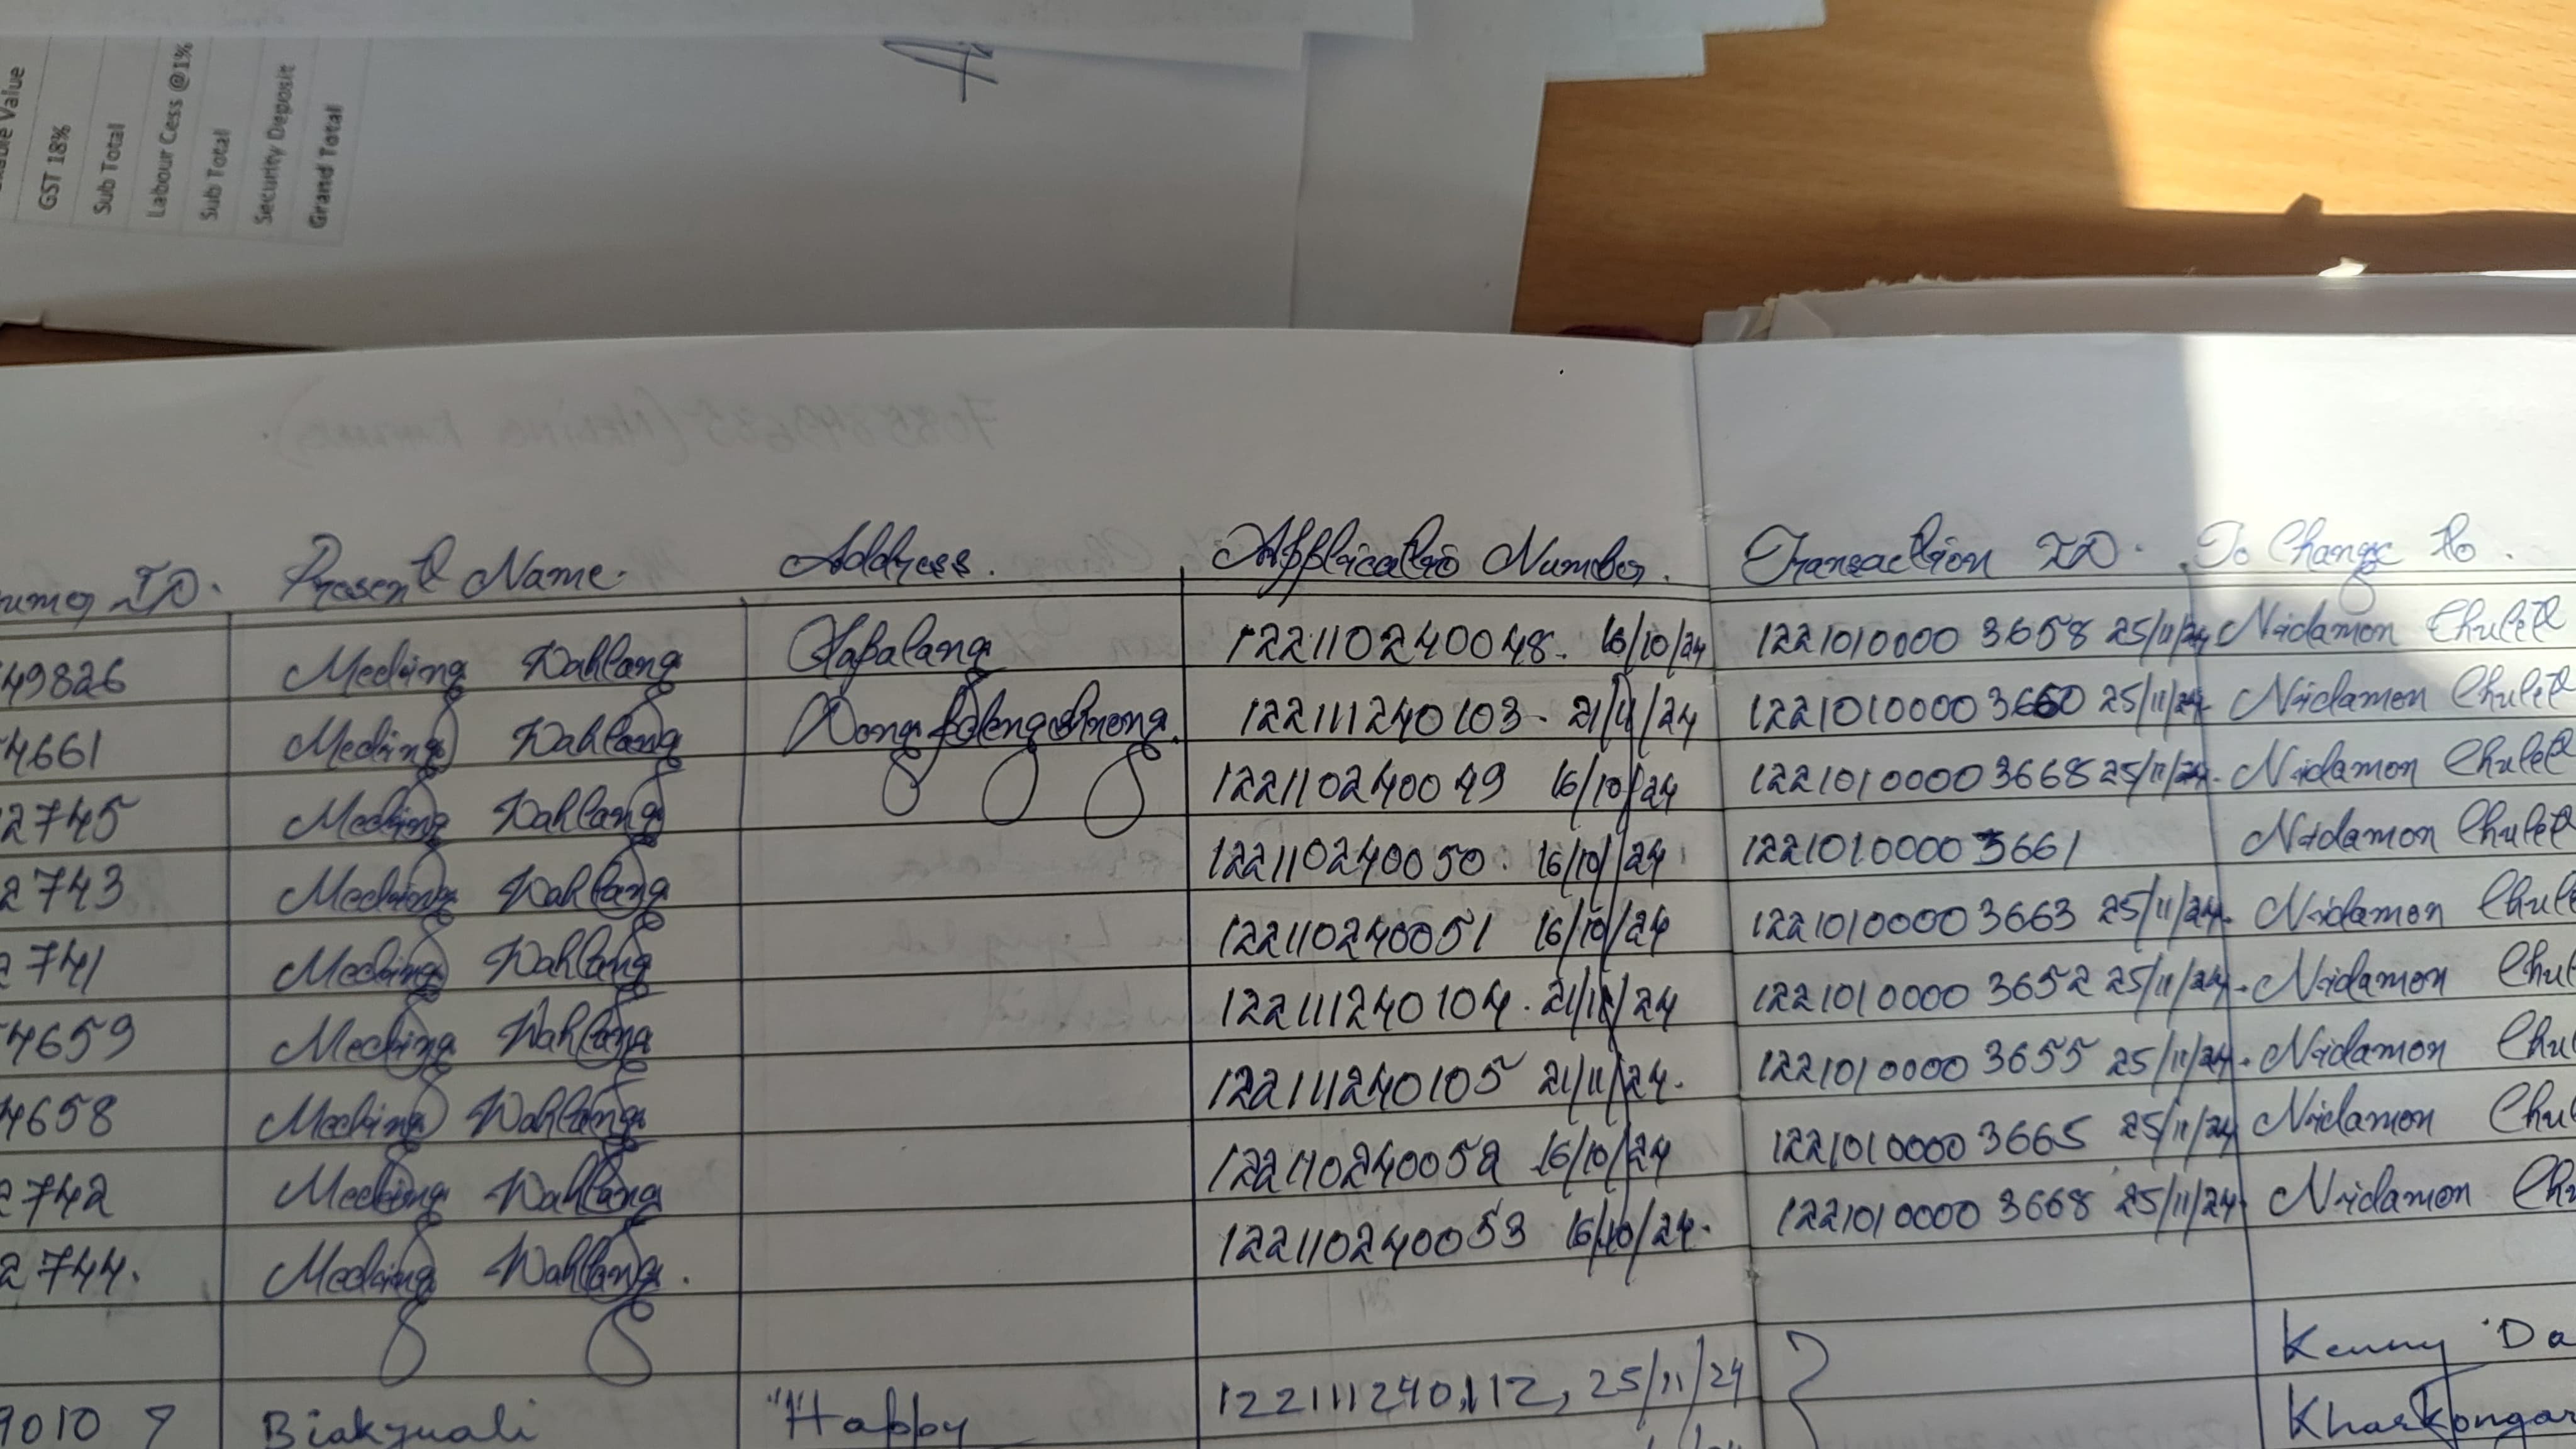 GST 18%
Sub Total
Labour Cess @1%
Sub Total
Security Deposit
Grand Total
ID. Present Name. Address. Applicatio Number. Transaction ID. To Change to.
49826 Meding Wahlang 122110240048. 16/10/24 12210100003658 25/11/24 Nidamon Chulet
4661 Meding Wahlang 122111240103- 21/11/24 12210100003660 25/11/24 Nidamon Chulet
2745 Meding Wahlang 122110240049 16/10/24 12210100003668 25/11/24. Nidamon Chulet
2743 Meding Wahlang 122110240050. 16/10/24 12210100003661 Nidamon Chulet
2741 Meding Wahlang 122110240051 16/10/24 12210100003663 25/11/24. Nidamon
4659 Meding Wahlang 122111240104. 21/11/24 12210100003652 25/11/24. Nidamon
4658 Meding Wahlang 122111240105 21/11/24. 12210100003655 25/11/24. Nidamon
2742 Meding Wahlang 122110240052 16/10/24 12210100003665 25/11/24 Nidamon
2744. Meding Wahlang. 122110240053 16/10/24. 12210100003668 25/11/24. Nidamon
Kenny
9010 "Happy 122111240112, 25/11/24 Kharkongor